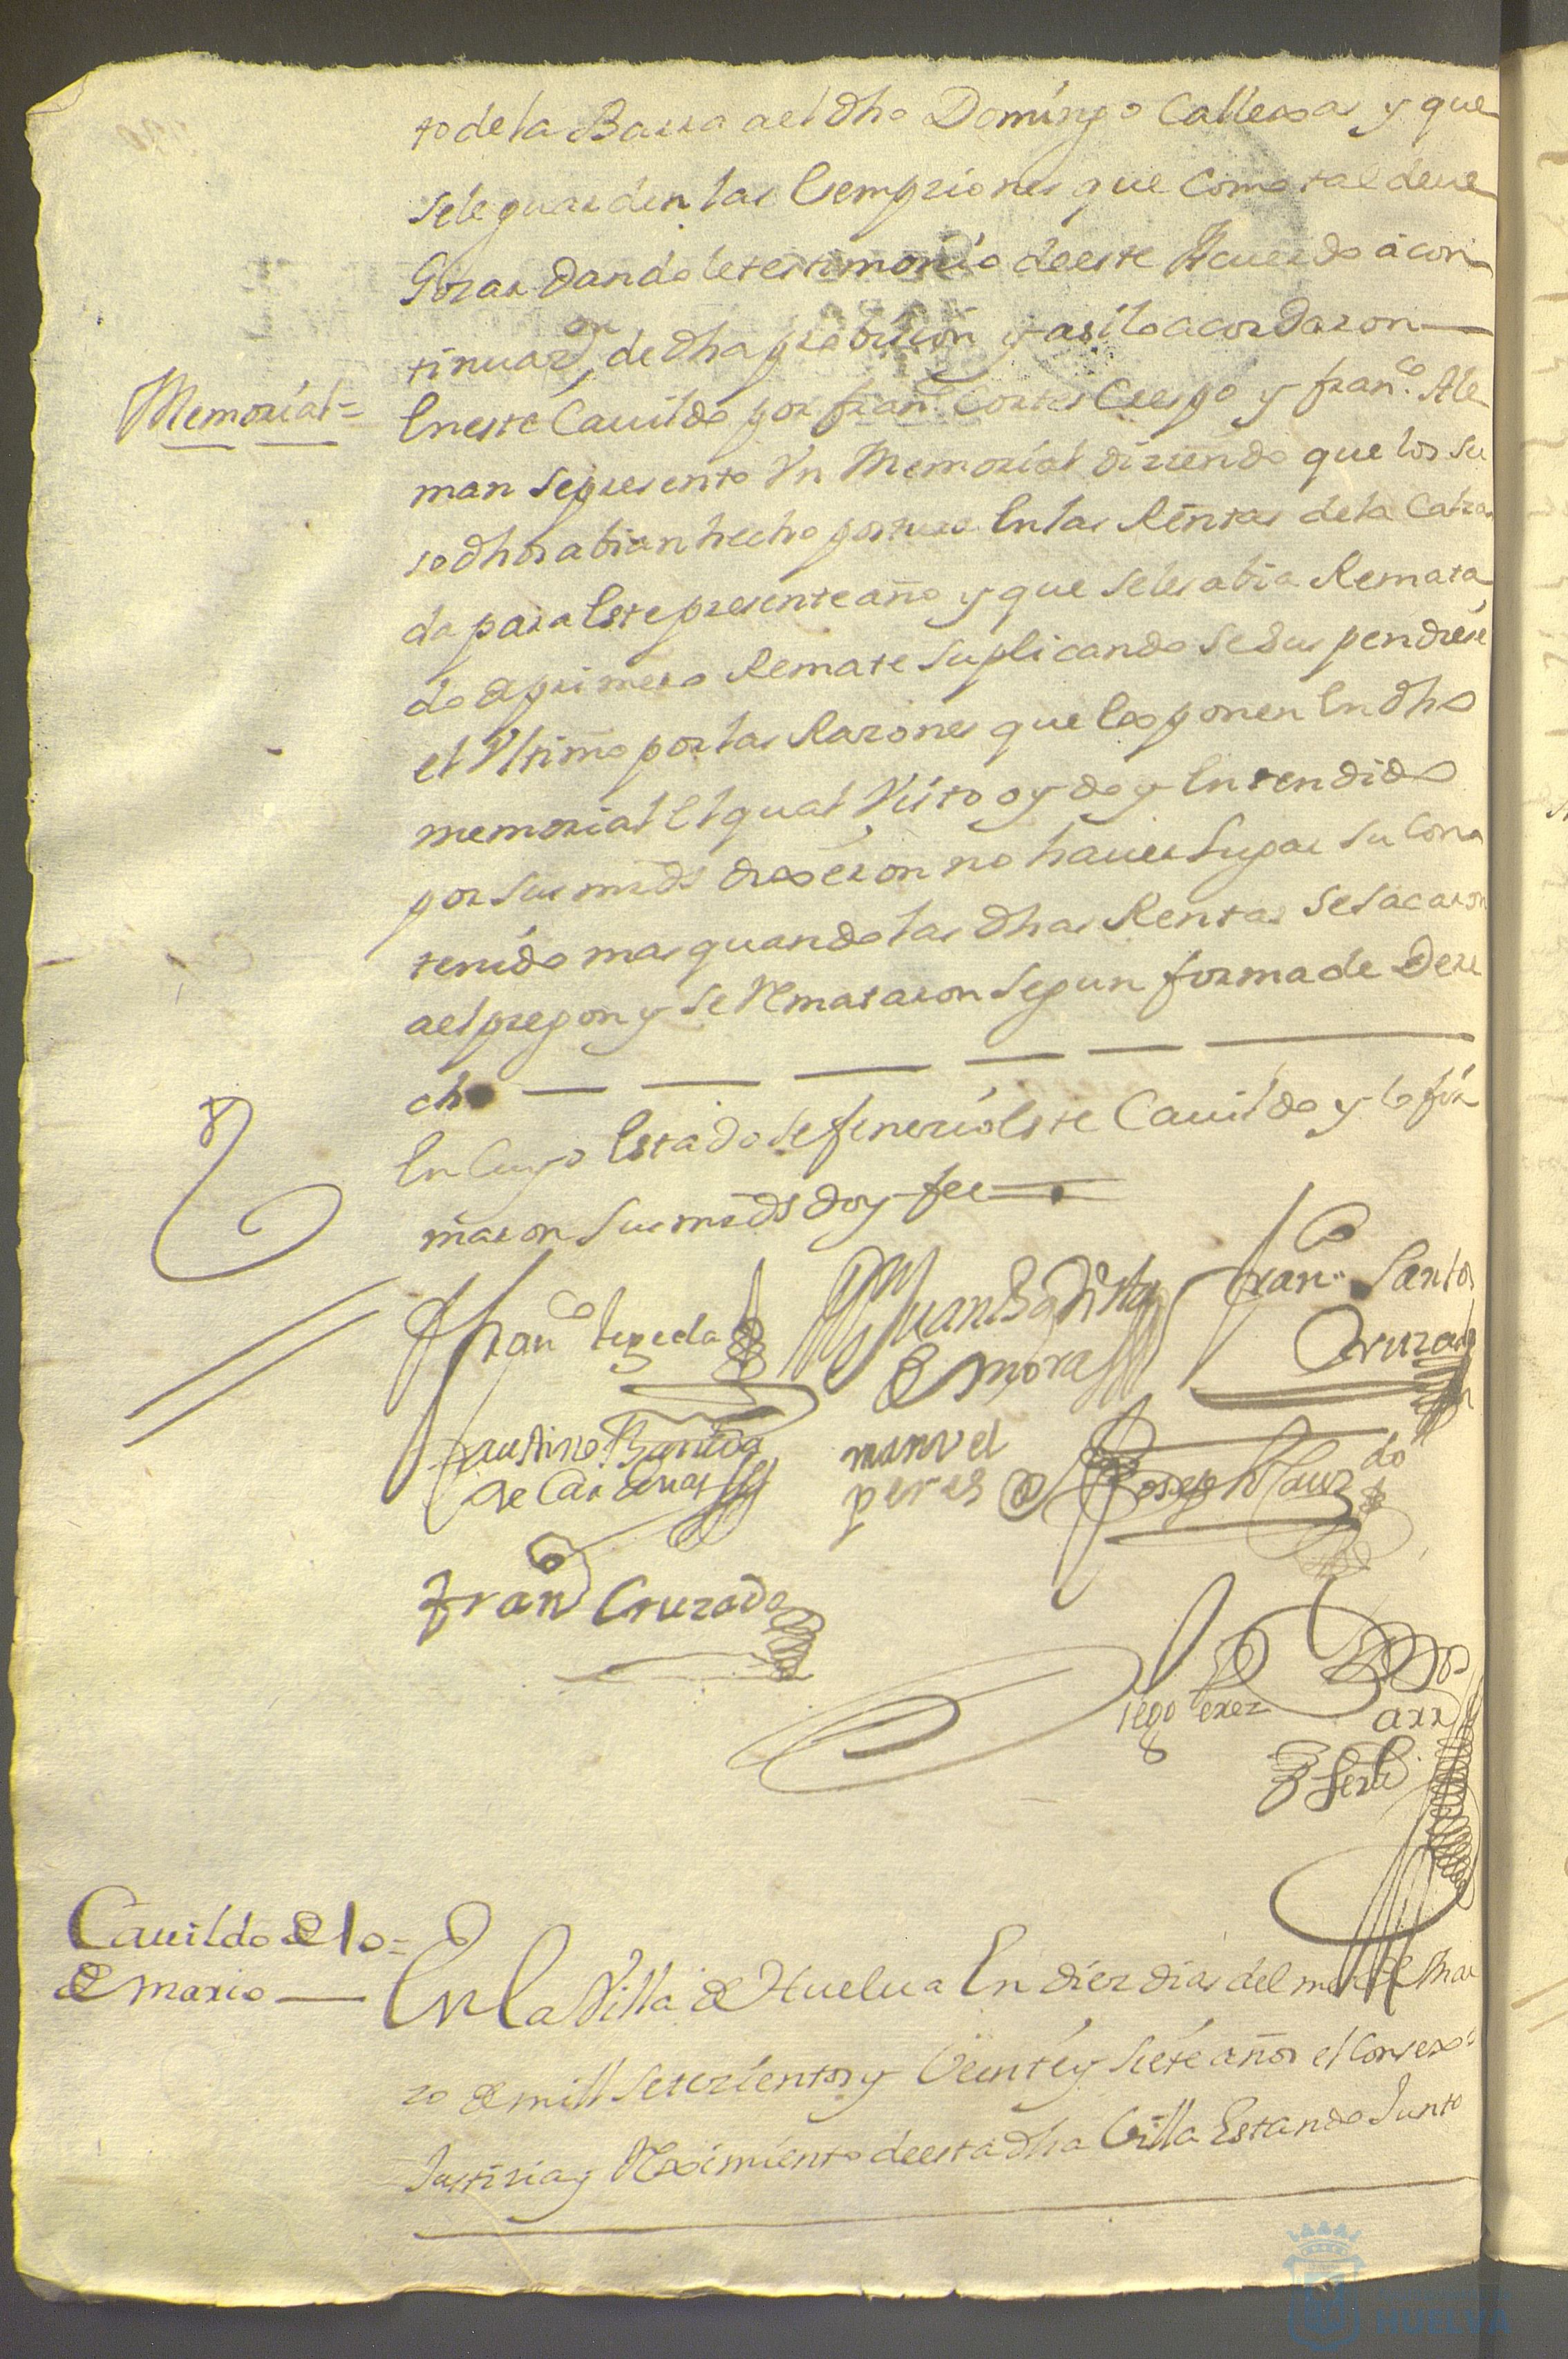 to de la Barra a el dho Domingo Callexas y que
se le guarden las Exempziones que Como tal deue
Gozar dandole testimonio de este Acuerdo á con
tinuazon de dha petizion y asi lo acordaron
Memorial=
En este Cauildo por franco Cortes Crespo y franco Ale
man se presento Vn Memorial diziendo que los su
so dhos abian hecho postura En las Rentas de la Calza
da para Este presente año y que se les abia Remata
do de primero Remate suplicando se suspendiese
el Vltimo por las Razones que Exponen En dho
memorial El qual Visto oydo y Entendido
por sus mrds dixeron no hauer lugar su Con
tenido mas quando las dhas Rentas se sacaron
a el pregon y se Remataron segun forma de Dere
cho
En Cuyo Estado se fenezió Este Cauildo y lo fir
maron sus mrds doy fee
Franco tegeda
Juan Batista
de mora
Franco Santos
Cruzado
Faustino
de Cardenas
manuel
peres
Joseph Cruzdo
Franco Cruzado
Diego Perez
Cauildo de 10=
de marzo
En la Villa de Huelua En diez dias del mes de Mar
zo de mill setezientos y Veinte y siete años el Consexo
Justizia y Reximiento de esta dha Villa Estando Junto
HUELVA